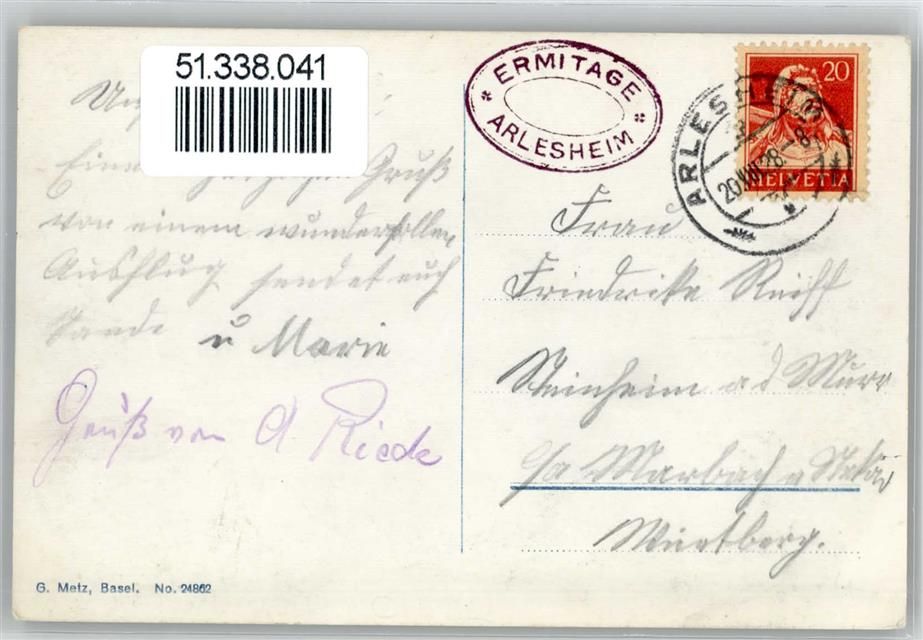 51.338.041
ERMITAGE
ARLESHEIM
20
HELVETIA
ARLESHEIM
Gruß
von einem wundervollen
Ausflug sendet euch
u Marie
Gruß von A Riede
Frau
Friedrike Reiff
Steinheim a d Murr
Marbach
Würtberg.
G. Metz, Basel. No. 24862